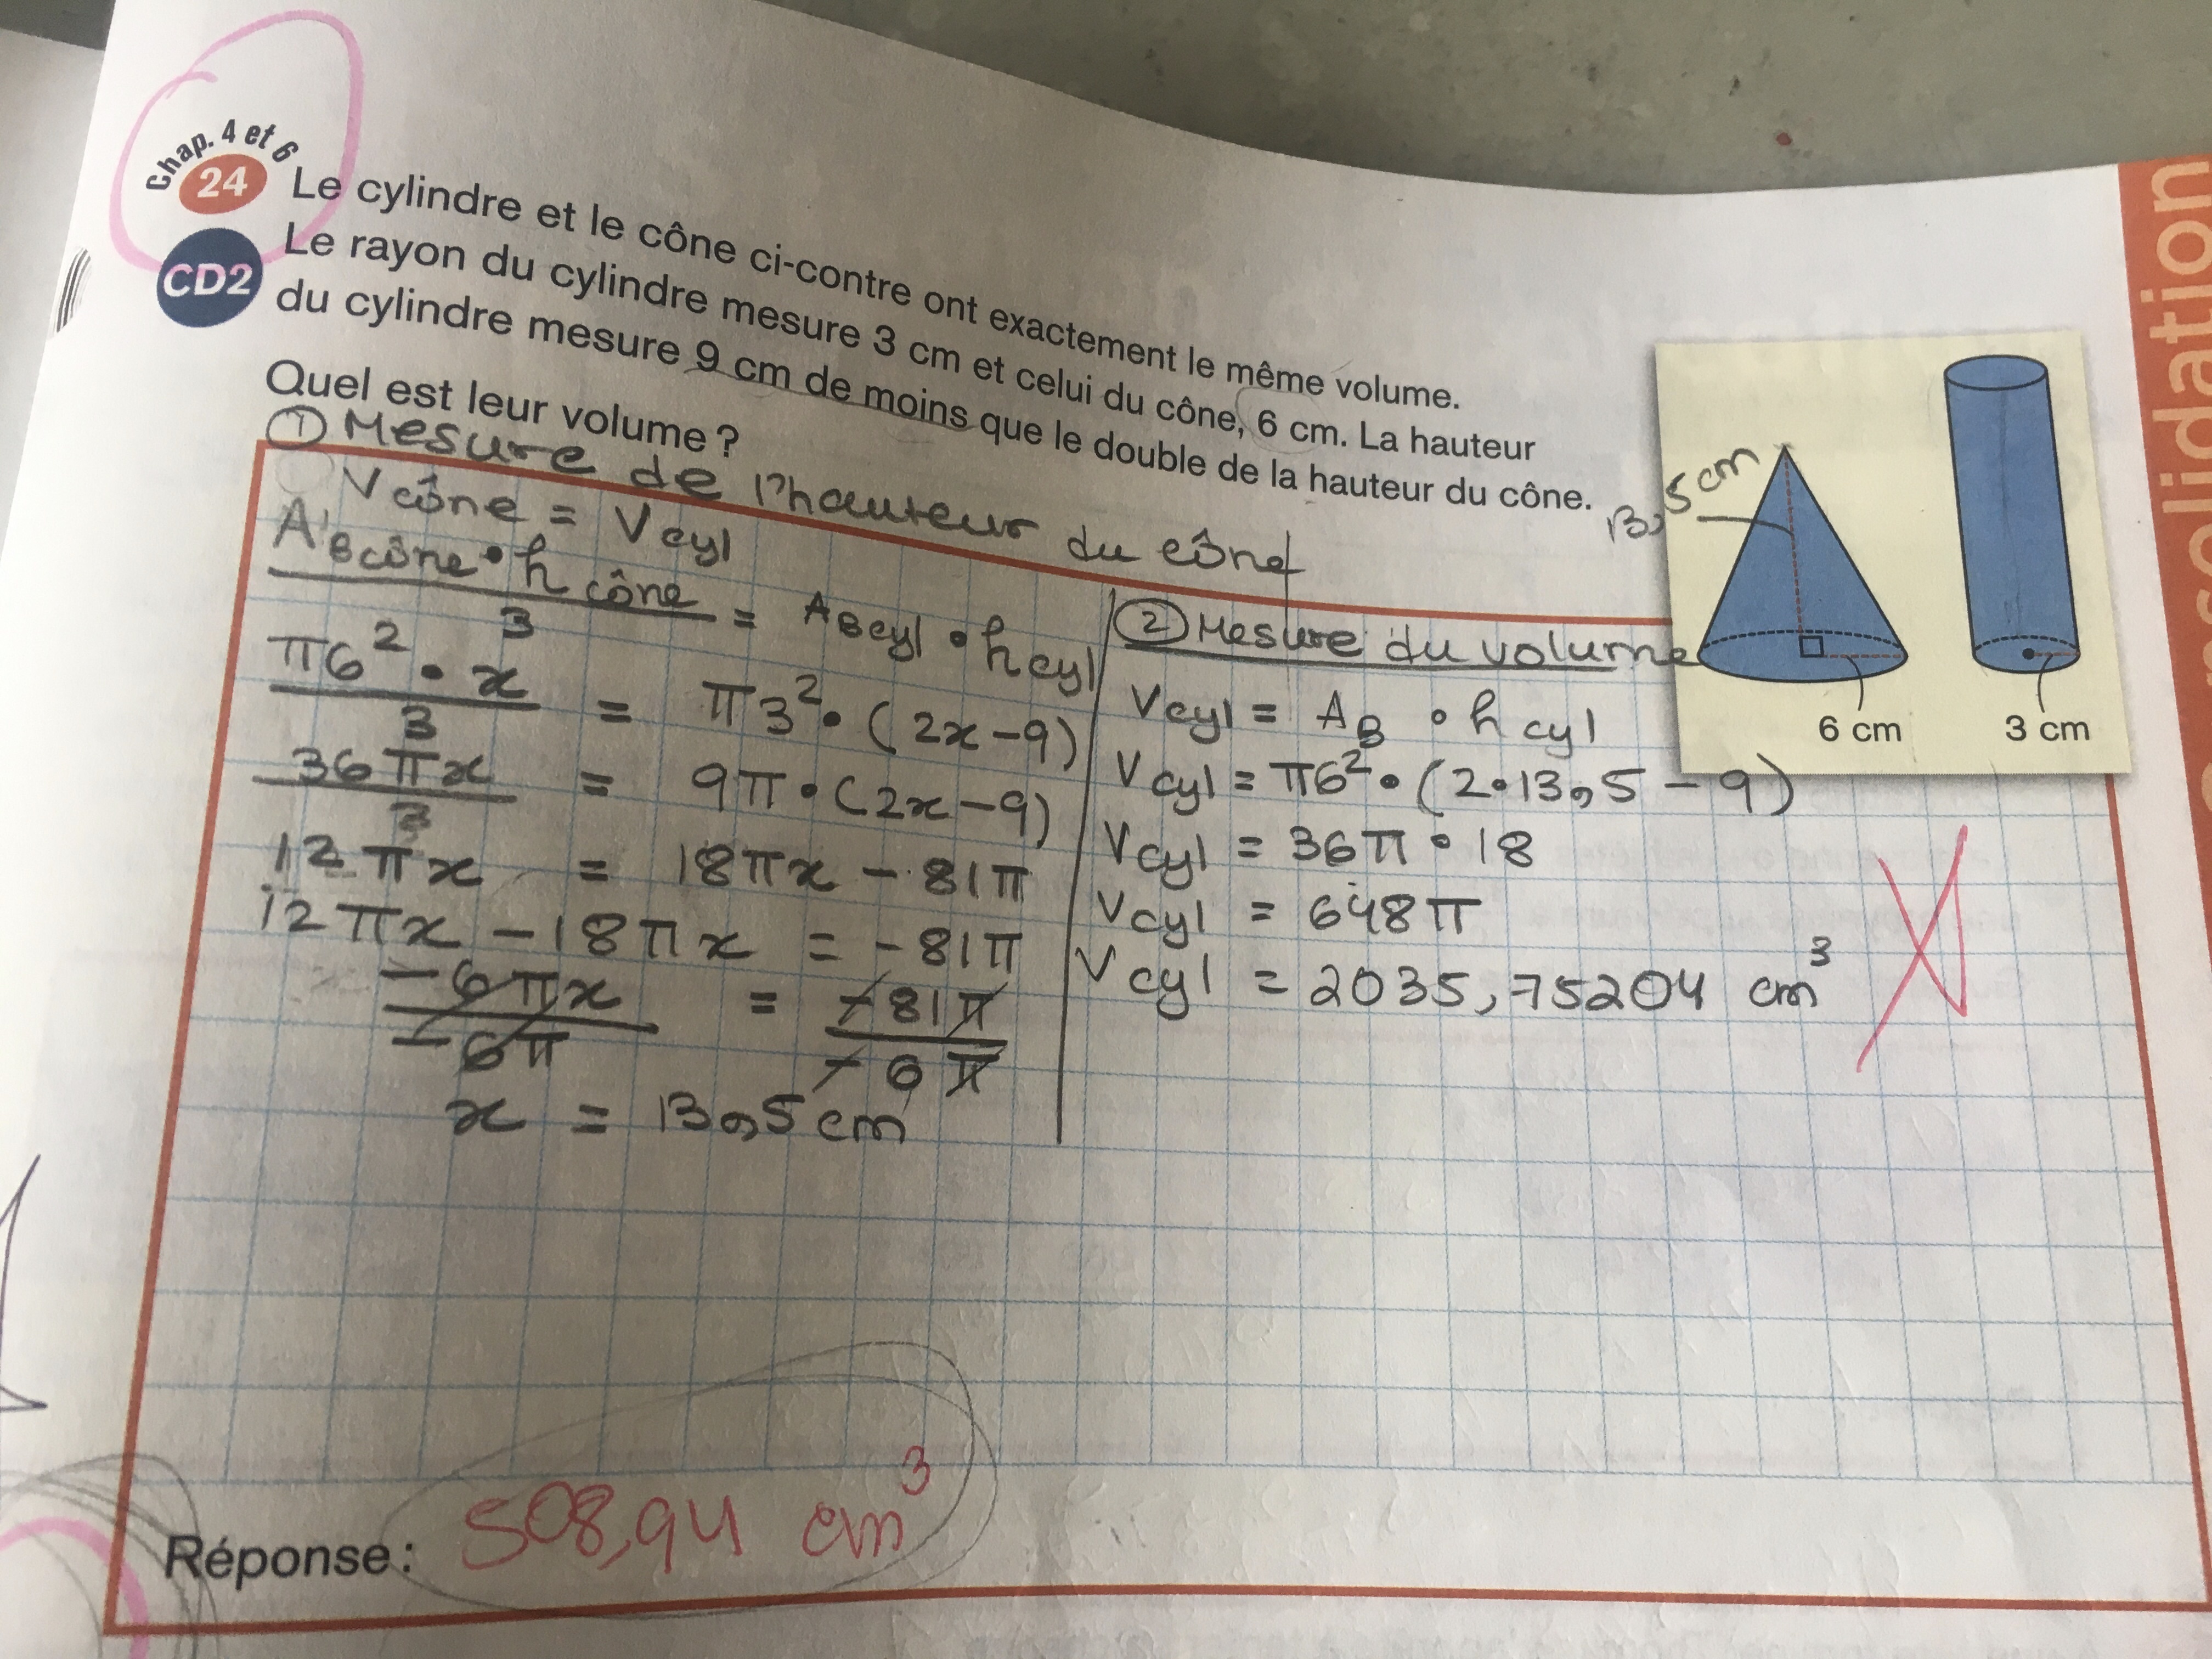 Chap. 4 et 6
24
CD2
Le cylindre et le cône ci-contre ont exactement le même volume.
Le rayon du cylindre mesure 3 cm et celui du cône, 6 cm. La hauteur
du cylindre mesure 9 cm de moins que le double de la hauteur du cône.
Quel est leur volume ?
① Mesure de l'hauteur du cône
V cône = V cyl
AB cône • h cône / 3 = AB cyl • h cyl
π6² • x / 3 = π3² • (2x - 9)
36πx / 3 = 9π • (2x - 9)
12πx = 18πx - 81π
12πx - 18πx = -81π
-6πx / -6π = -81π / -6π
x = 13,5 cm
② Mesure du volume
V cyl = AB • h cyl
V cyl = π6² • (2•13,5 - 9)
V cyl = 36π • 18
V cyl = 648π
V cyl = 2035,75204 cm³
13,5 cm
6 cm
3 cm
Réponse : 508,94 cm³